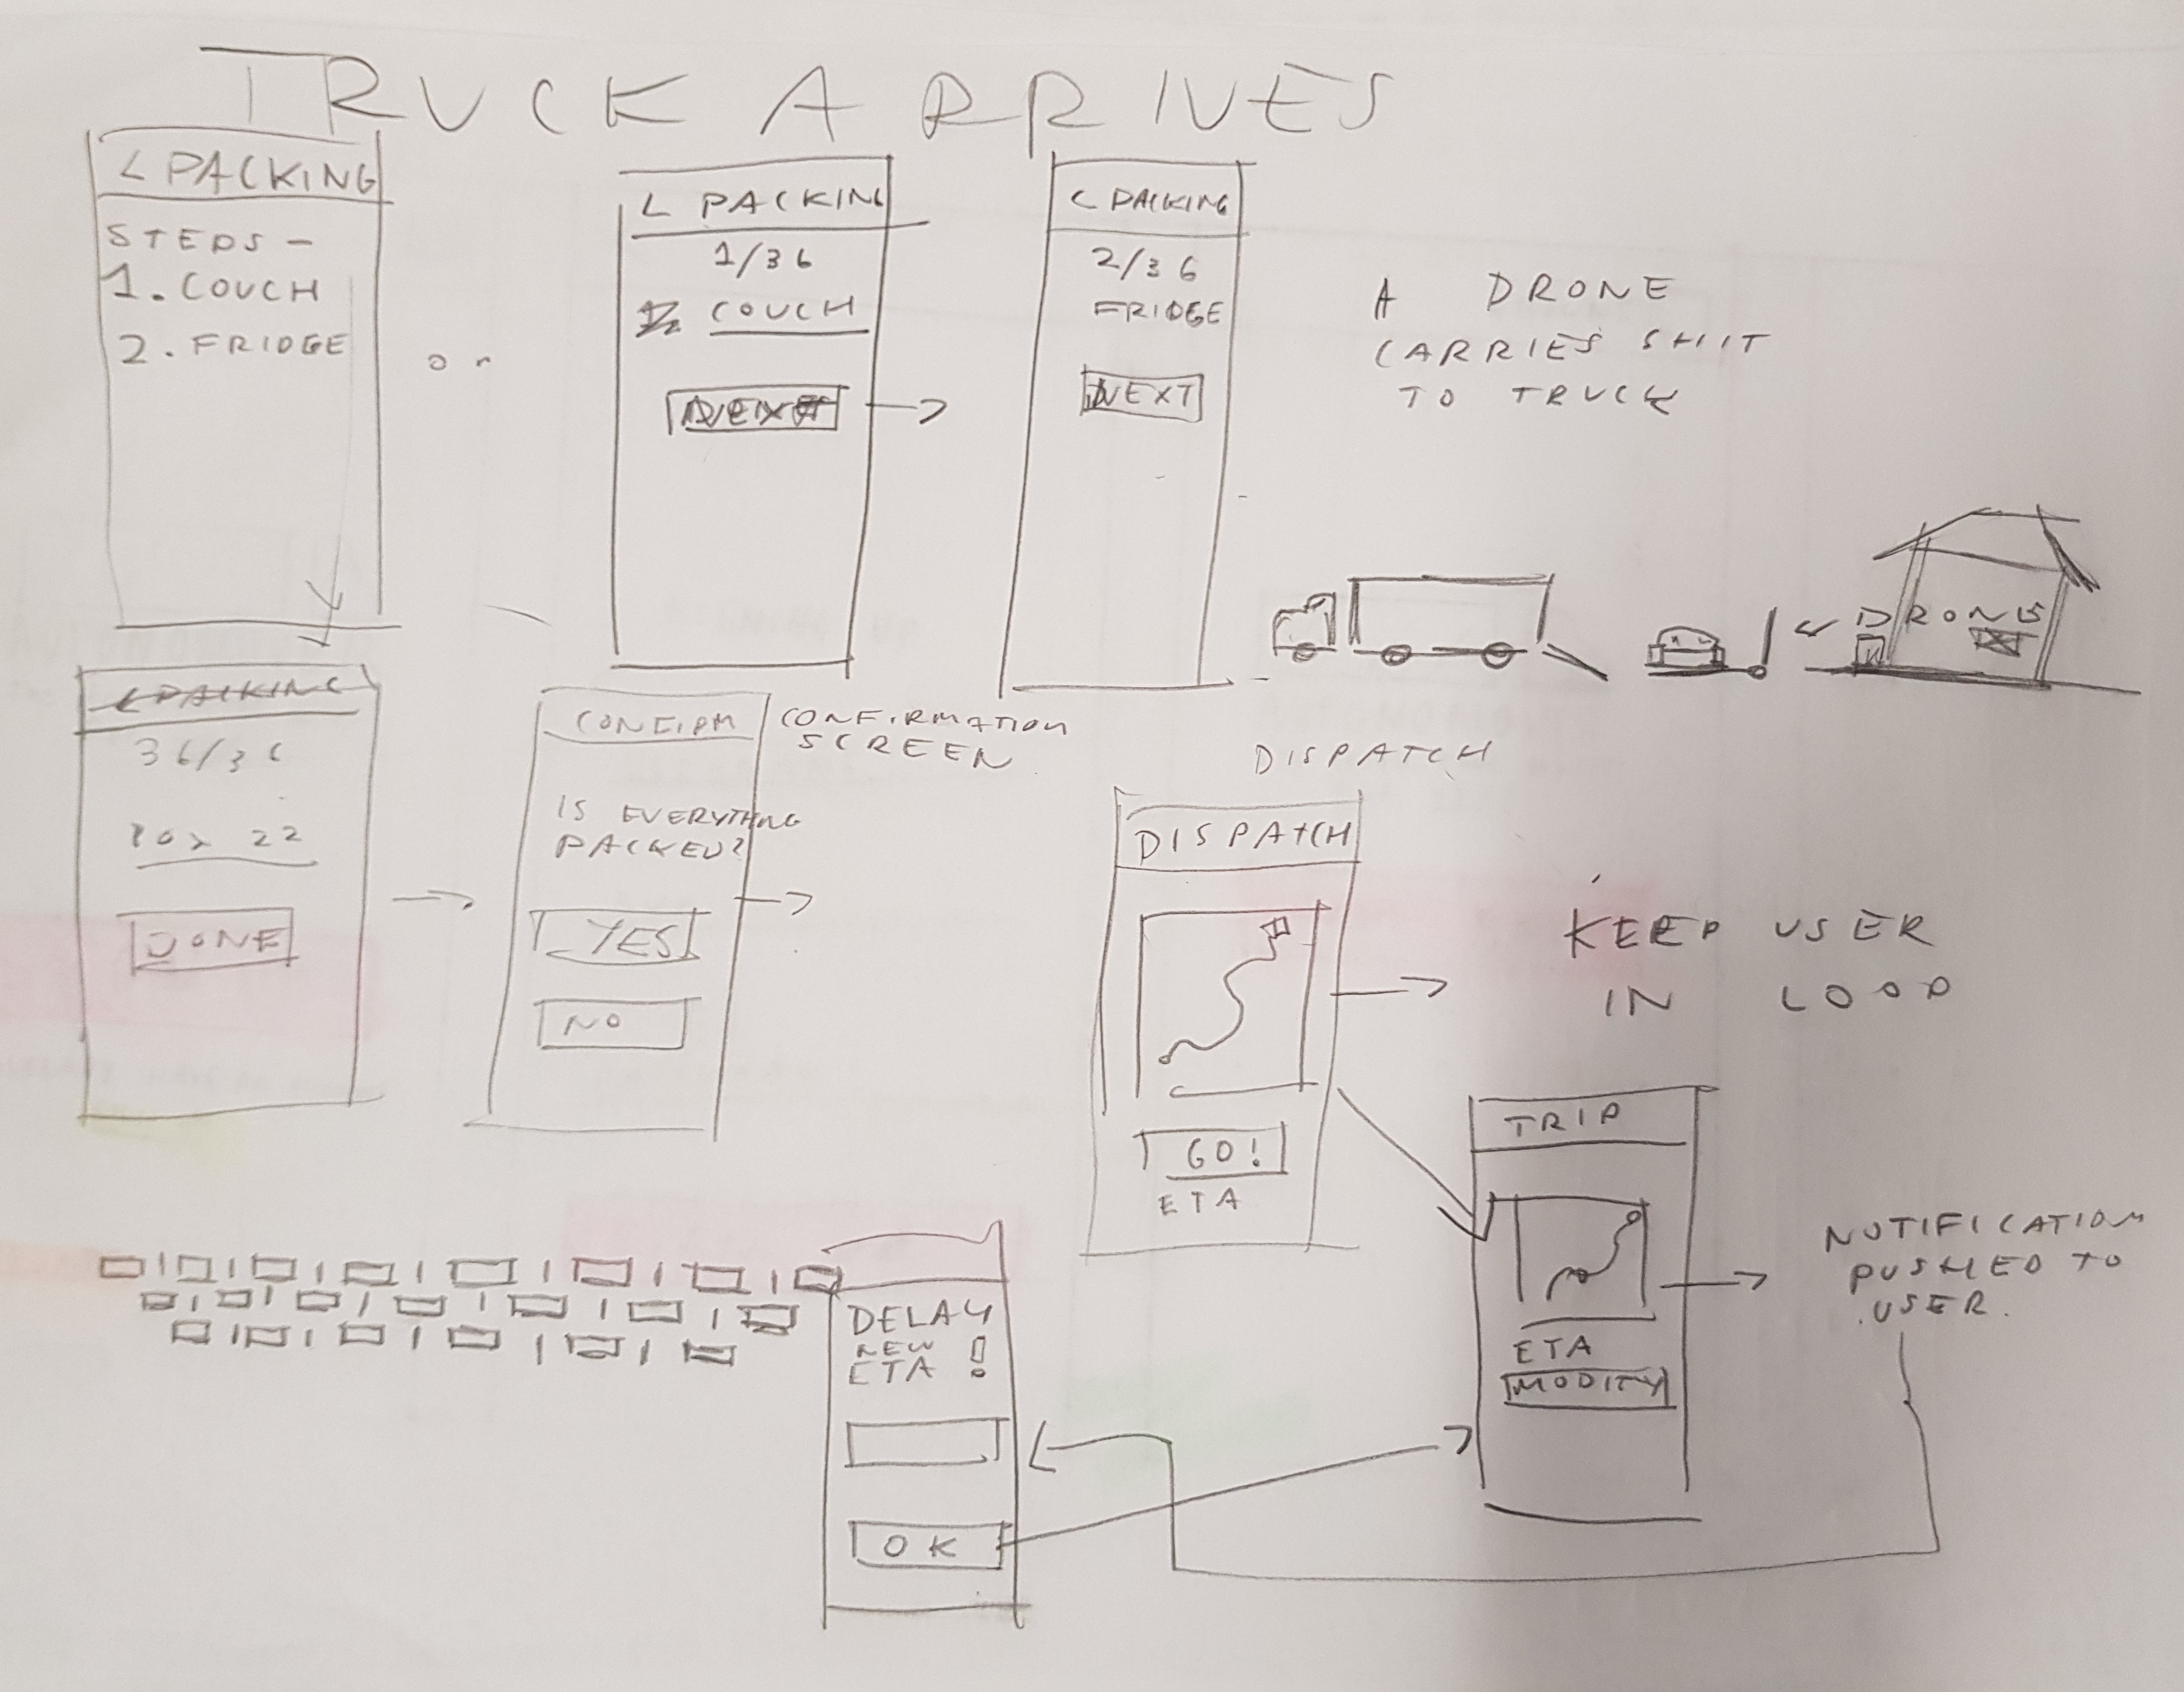 TRUCK ARRIVES
< PACKING
STEPS -
1. COUCH
2. FRIDGE
or
< PACKING
1/36
COUCH
NEXT
< PACKING
2/36
FRIDGE
NEXT
A DRONE
CARRIES SHIT
TO TRUCK
DRONE
< PACKING
36/36
22
DONE
CONFIRM
IS EVERYTHING
PACKED?
YES
NO
CONFIRMATION
SCREEN
DISPATCH
DISPATCH
GO!
ETA
KEEP USER
IN LOOP
TRIP
ETA
MODIFY
NOTIFICATION
PUSHED TO
USER.
DELAY
NEW
ETA !
OK